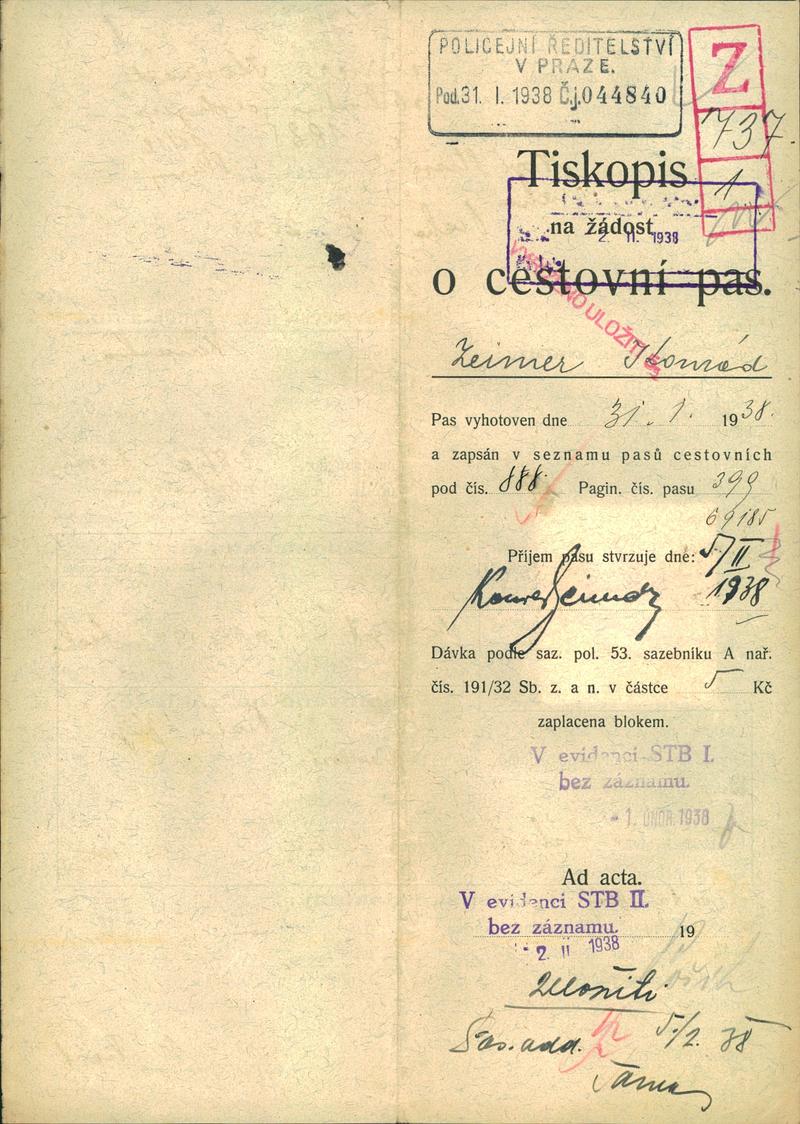 POLICEJNÍ ŘEDITELSTVÍ
V PRAZE.
Pod. 31. I. 1938 Č.j. 044840
Z
737
1
Tiskopis
na žádost
2. II. 1938
o cestovní pas.
ULOŽIT
Zeimer Konrád
Pas vyhotoven dne 31. 1. 1938.
a zapsán v seznamu pasů cestovních
pod čís. 888. Pagin. čís. pasu 399
69185
Příjem pasu stvrzuje dne: 5/II
1938
Dávka podle saz. pol. 53. sazebníku A nař.
čís. 191/32 Sb. z. a n. v částce 5 Kč
zaplacena blokem.
V evidenci STB I.
bez záznamu.
- 1. ÚNOR. 1938
Ad acta.
V evidenci STB II.
bez záznamu. 19
- 2. II 1938
5/2. 38